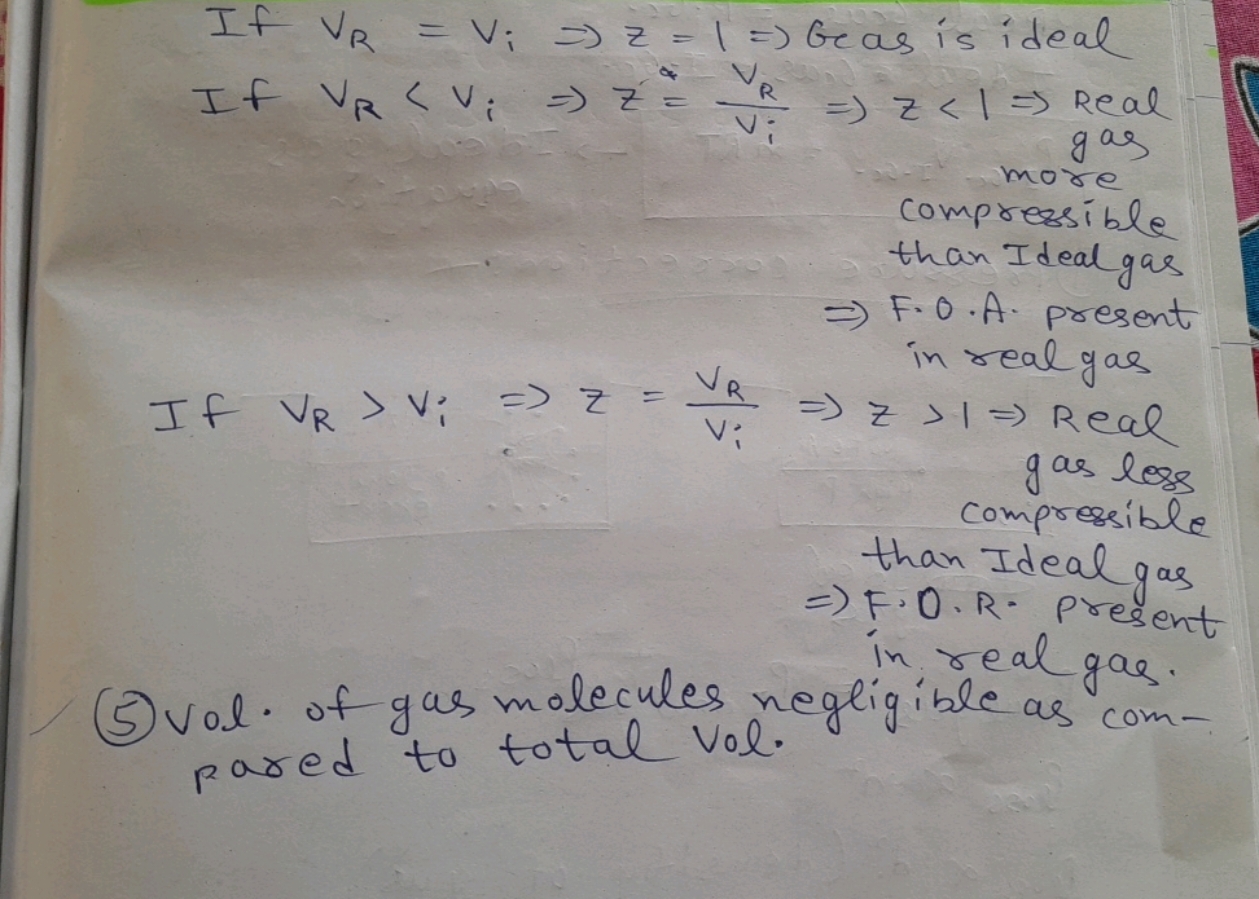 If VR = Vi => z = 1 => Gas is ideal
If VR < Vi => z = VR/Vi => z < 1 => Real
gas
more
compressible
than Ideal gas
=> F.O.A. present
in real gas
If VR > Vi => z = VR/Vi => z > 1 => Real
gas less
compressible
than Ideal gas
=> F.O.R. present
in real gas.
⑤ Vol. of gas molecules negligible as com-
pared to total Vol.